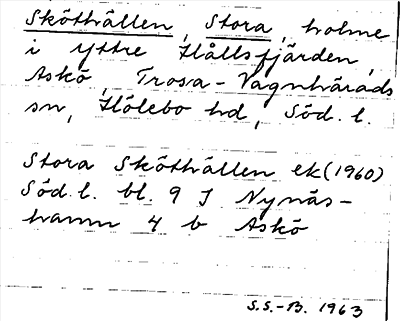 Sköthällen, Stora, holme
i yttre Hållsfjärden,
Askö, Trosa-Vagnhärads
sn, Hölebo hd, Söd. l.
Stora Sköthällen ek (1960)
Söd. l. bl. 9 I Nynäs-
hamn 4 b Askö
S.S.-B. 1963